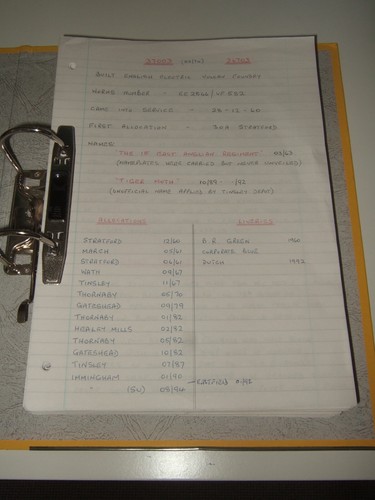 BUILT ENGLISH ELECTRIC VULCAN FOUNDRY
WORKS NUMBER
CAME INTO SERVICE - 28-12-60
FIRST ALLOCATION - 30A STRATFORD
NAMES
THE 1ST EAST ANGLIAN REGIMENT
(NAMEPLATES WERE CARRIED BUT NEVER UNVEILED)
"TIGER MOTH"
(UNOFFICIAL NAME APPLIED BY TINSLEY DEPOT)
ALLOCATIONS LIVERIES
STRATFORD 12/60 B.R. GREEN 1960
MARCH CORPORATE BLUE
STRATFORD 06/61 DUTCH 1992
WATH 09/67
TINSLEY 11/67
THORNABY 05/70
GATESHEAD 09/79
THORNABY 01/82
HEALEY MILLS 02/82
THORNABY 05/82
GATESHEAD 10/82
TINSLEY 07/87
IMMINGHAM 01/90
" (SU) 08/94